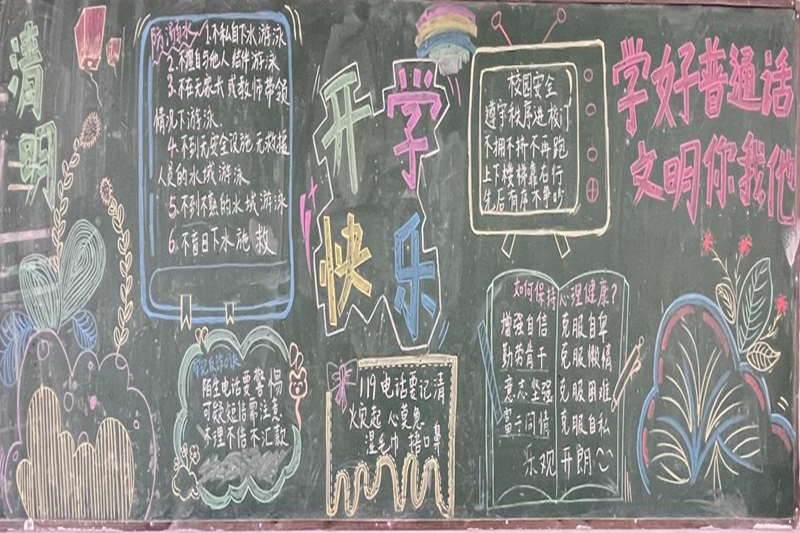 清明
防溺水
1.不私自下水游泳
2.不擅自与他人结伴游泳
3.不在无家长或教师带领
情况下游泳
4.不到无安全设施无救援
人员的水域游泳
5.不到不熟的水域游泳
6.不盲目下水施救
开学
快乐
校园安全
遵守秩序进校门
不拥不挤不再跑
上下楼梯靠右行
先后有序不争吵
学好普通话
文明你我他
陌生电话要警惕
可疑短信需注意
不理不信不汇款
119电话要记清
火灾起 心莫急
湿毛巾 捂口鼻
如何保持心理健康?
增强自信 克服自卑
勤劳肯干 克服懒惰
意志坚强 克服困难
富于同情 克服自私
乐观开朗